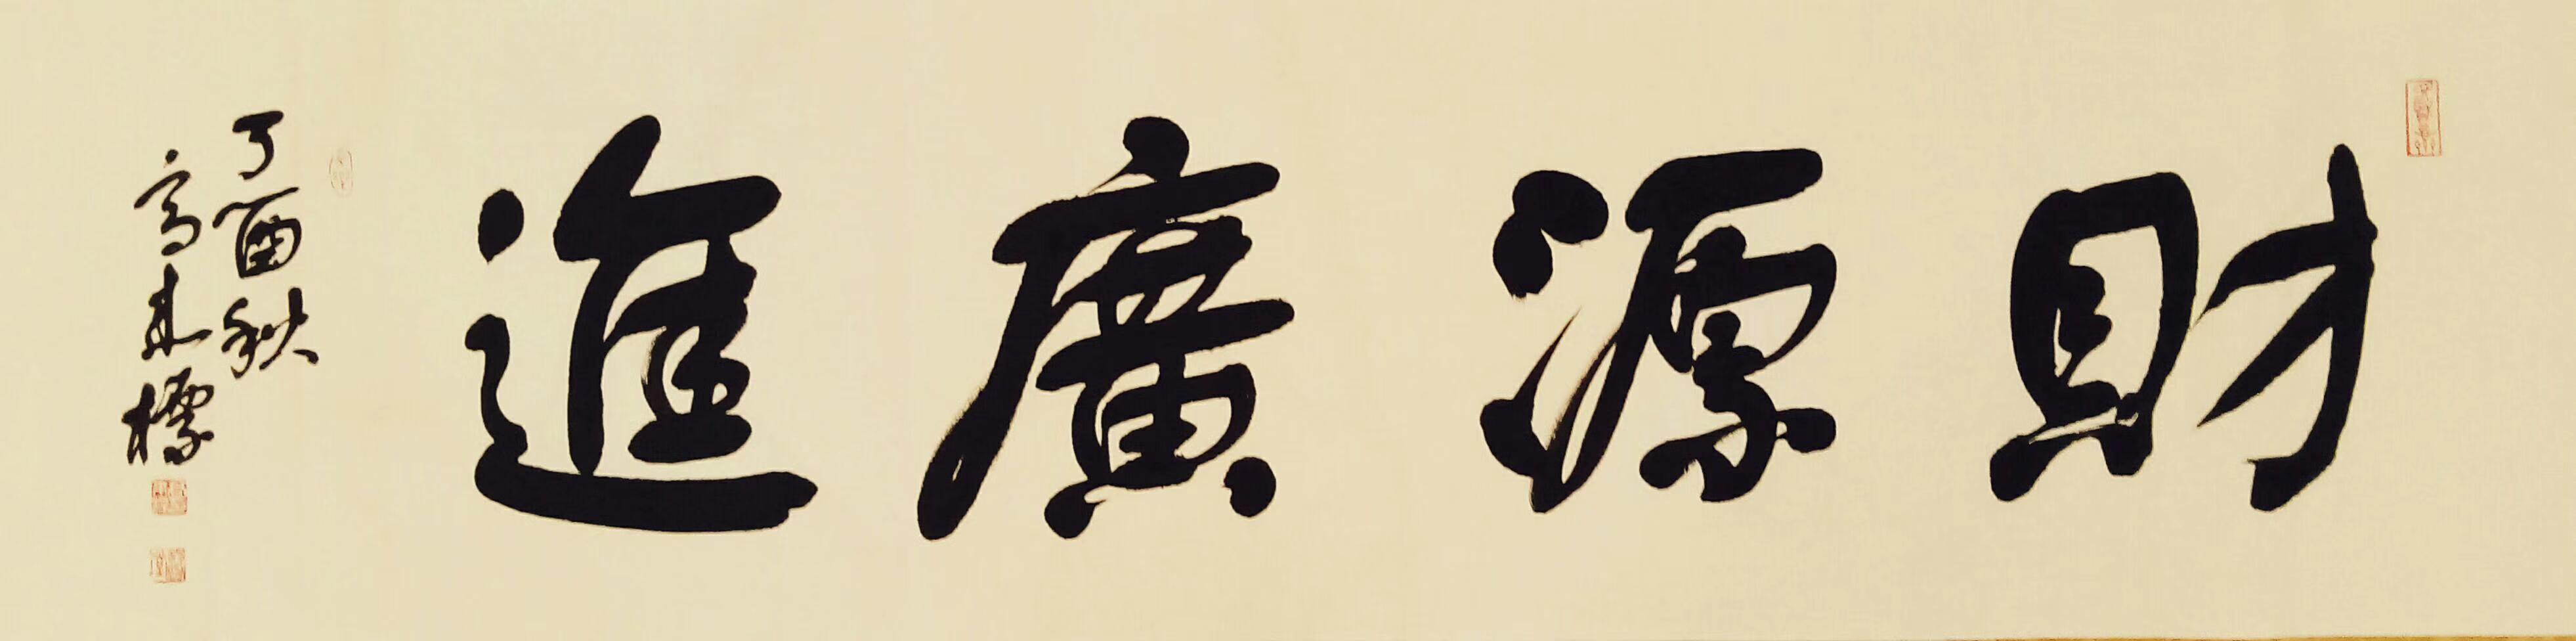 財源廣進
丁酉秋
高來標